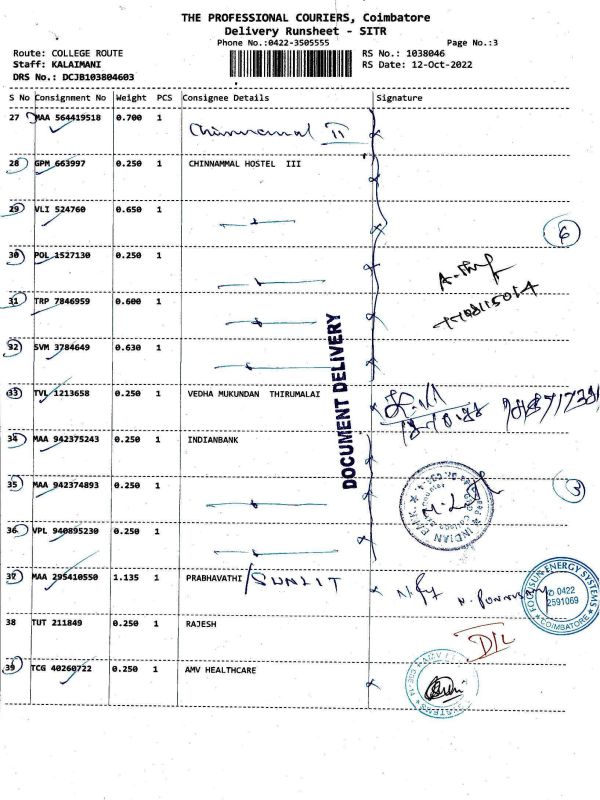 THE PROFESSIONAL COURIERS, Coimbatore
Delivery Runsheet - SITR
Phone No.:0422-3505555 Page No.:3
Route: COLLEGE ROUTE RS No.: 1038046
Staff: KALAIMANI RS Date: 12-Oct-2022
DRS No.: DCJB103804603
S No Consignment No Weight PCS Consignee Details Signature
27 MAA 564419518 0.700 1 Chinnammal II
28 GPM 663997 0.250 1 CHINNAMMAL HOSTEL III
29 VLI 524760 0.650 1
6
30 POL 1527130 0.250 1
31 TRP 7846959 0.600 1
32 SVM 3784649 0.630 1
DOCUMENT DELIVERY
33 TVL 1213658 0.250 1 VEDHA MUKUNDAN THIRUMALAI
34 MAA 942375243 0.250 1 INDIANBANK
35 MAA 942374893 0.250 1
3
INDIAN BANK
36 VPL 940895230 0.250 1
37 MAA 295410550 1.135 1 PRABHAVATHI / SUNLIT
FOCUSUN ENERGY SYSTEMS
0422
2591069
COIMBATORE
38 TUT 211849 0.250 1 RAJESH D/L
39 TCG 40260722 0.250 1 AMV HEALTHCARE
AMV